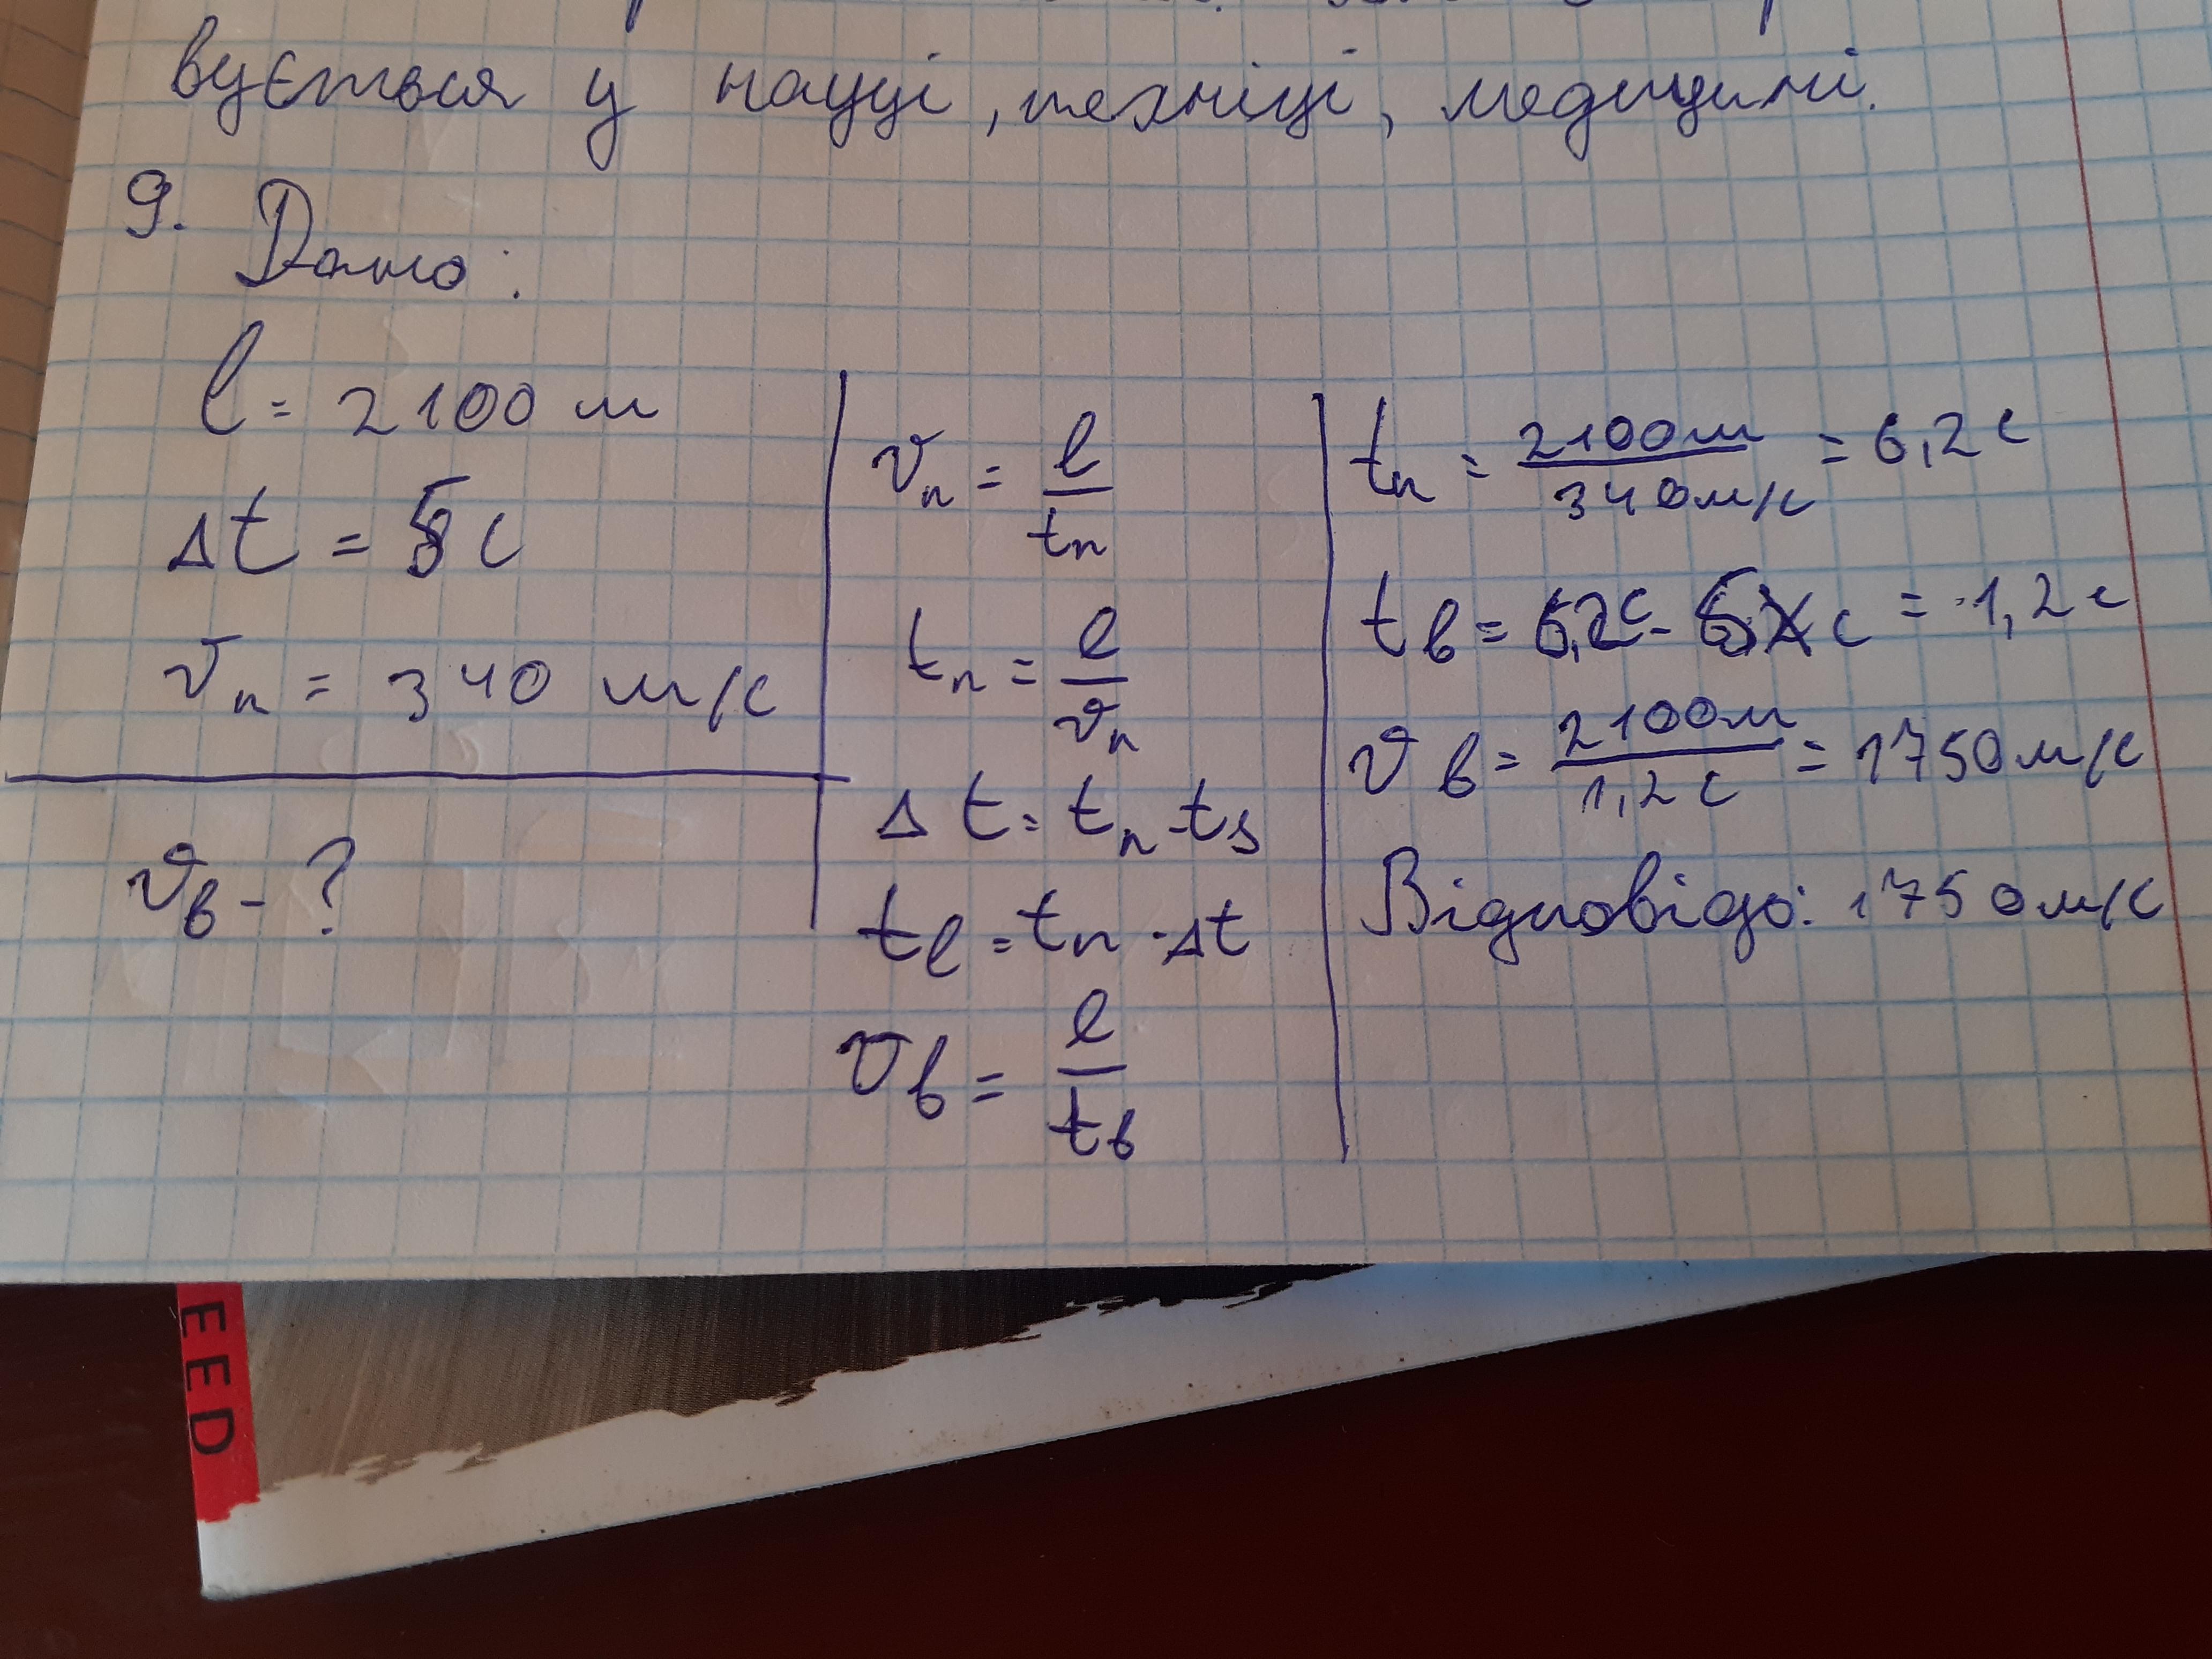 вується у науці, техніці, медицині.
9. Дано:
l = 2100 м
Δt = 5 с
vп = 340 м/с
vв - ?
vп = l/tп
tп = l/vп
Δt = tп - tв
tв = tп - Δt
vв = l/tв
tп = 2100м/340м/с = 6,2с
tв = 6,2с - 5 с = 1,2с
vв = 2100м/1,2с = 1750м/с
Відповідь: 1750м/с
EED